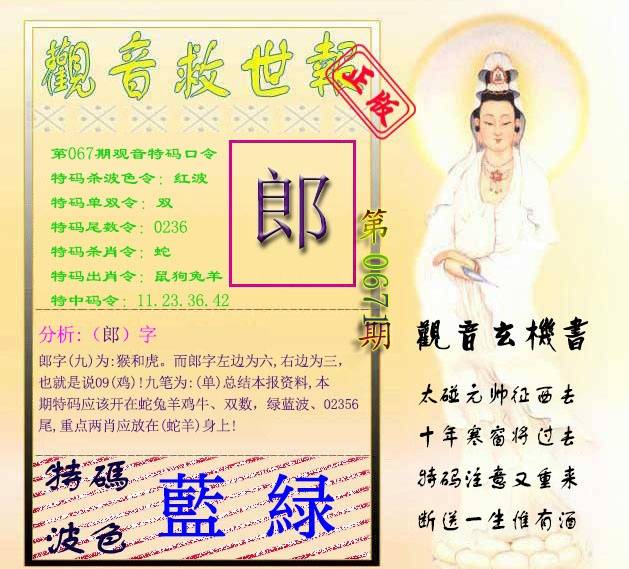 觀音救世報
正版
第067期观音特码口令
特码杀波色令: 红波
特码单双令: 双
特码尾数令: 0236
特码杀肖令: 蛇
特码出肖令: 鼠狗兔羊
特中码令: 11.23.36.42
郎
第0671期
分析:（郎）字
郎字(九)为:猴和虎。而郎字左边为六,右边为三,
也就是说09(鸡)!九笔为:(单)总结本报资料,本
期特码应该开在蛇兔羊鸡牛、双数，绿蓝波、02356
尾,重点两肖应放在(蛇羊)身上!
特碼
波色
藍緑
觀音玄機書
太碰元帅征西去
十年寒窗将过去
特码注意又重来
断送一生惟有酒